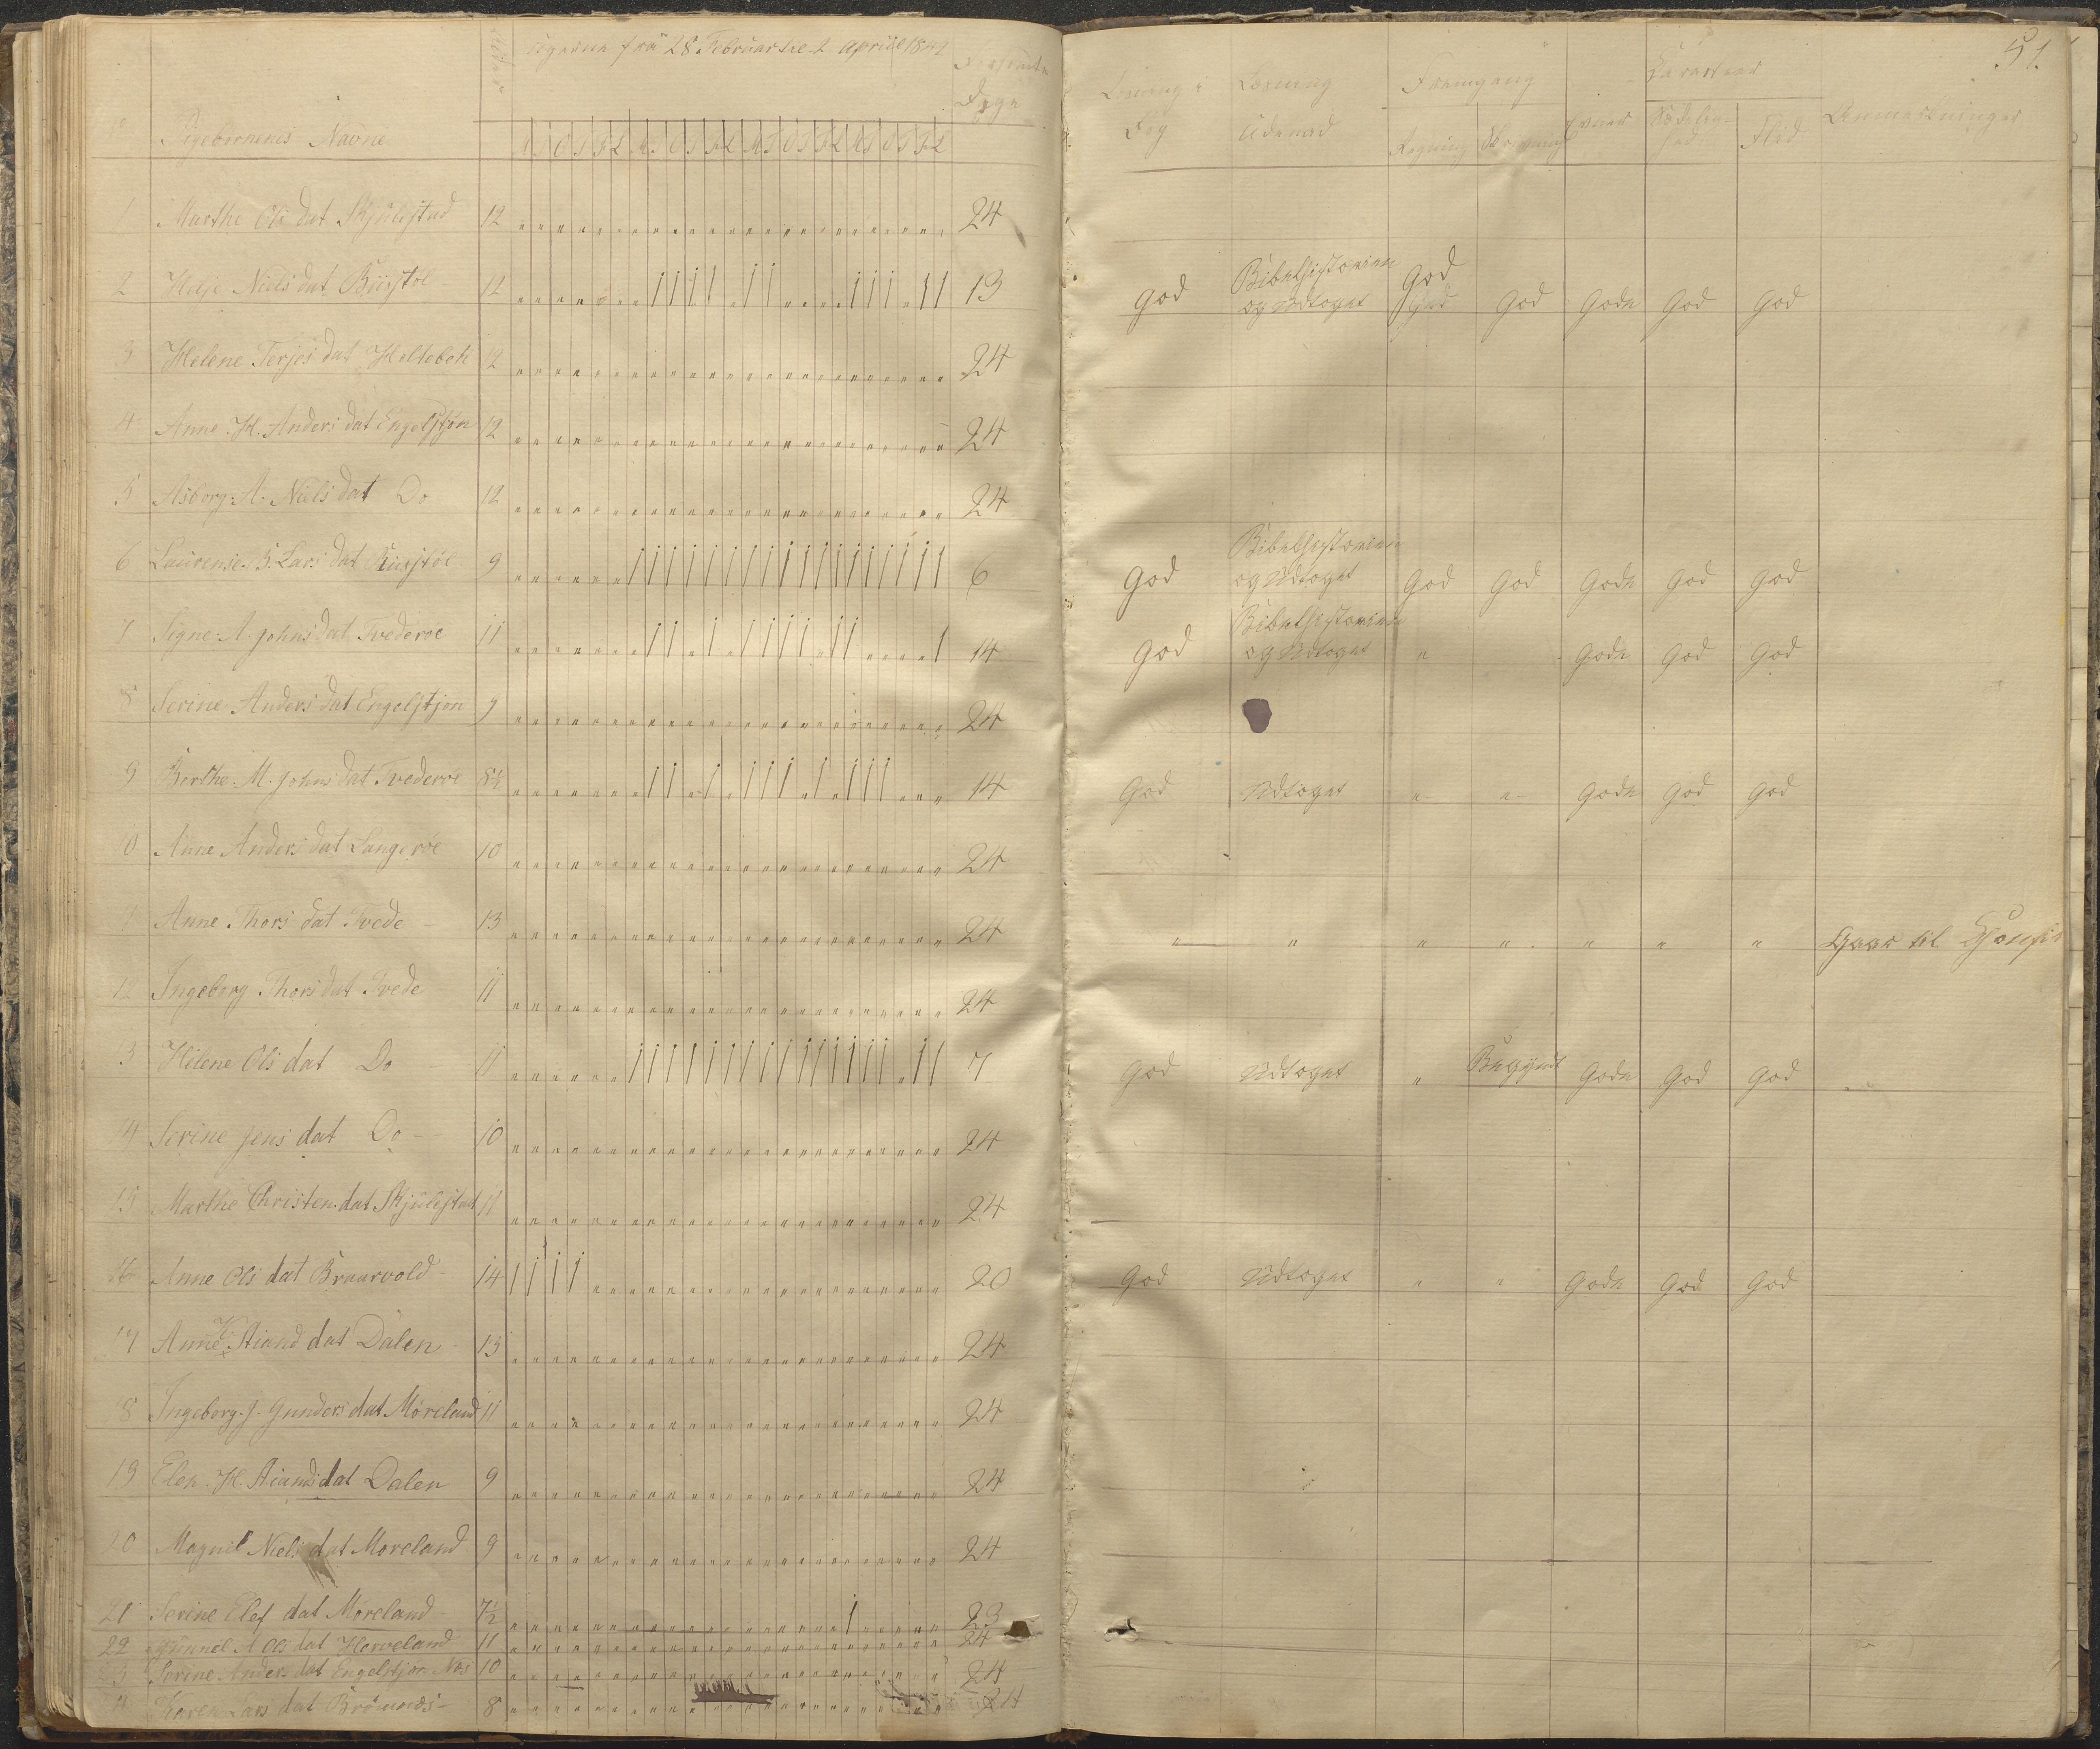 28 Februar til 2 April 1842
Dage
Pigebørnenes Navne
M T O T F L M T O T F L M T O T F L M T O T F L
1 Marthe Ols dat Skjulestad 12 24
2 Helje Niels dat 12 13
3 Helene Terjes dat Heltebek 12 24
4 Anne H. Anders dat Engelstjøn 12 24
5 Asborg A. Niels dat Do 12 24
6 Laurense B. Lars dat 9 6
7 Signe A. Johns dat Tvederøe 11 14
8 Serine Anders dat Engelstjøn 9 24
9 Berthe M. Johns dat Tvederøe 8½ 14
10 Anne Anders dat Langerøe 10 24
Anne Thors dat Tvede 13 24
12 Ingeborg Thors dat Tvede 11 24
13 Helene Ols dat Do 11 7
14 Serine Jens dat Do 10 24
15 Marthe Christen dat Skjulestad 11 24
16 Anne Ols dat Braarvold 14 20
17 Anne K. Aianddat Dalen 13 24
18 Ingeborg J. Gunders dat Møreland 11 24
19 Elen H. Aiands dat Dalen 9 24
20 Magnil Niels dat Moreland 9 24
21 Serine Elef dat Møreland 7½ 23
22 Gunnel A Ols dat 11 24
Serine Anders dat Engelstjøn Næs 10 24
Karen Lars dat 8 24
51
Læsning i Bog
Læsning Udenad
Fremgang
Regning Skrivning
Evner
Karakteer
Sædelighed
Flid
Anmærkninger
God Bibelhistorien og Udtoget God God Gode God God
God Bibelhistorien og Udtoget God God Gode God God
God Bibelhistorien og Udtoget " Gode God God
God Udtoget " " Gode God God
" " " " " " " Gaar til
God Udtoget " Begyndt Gode God God
God Udtoget " " Gode God God